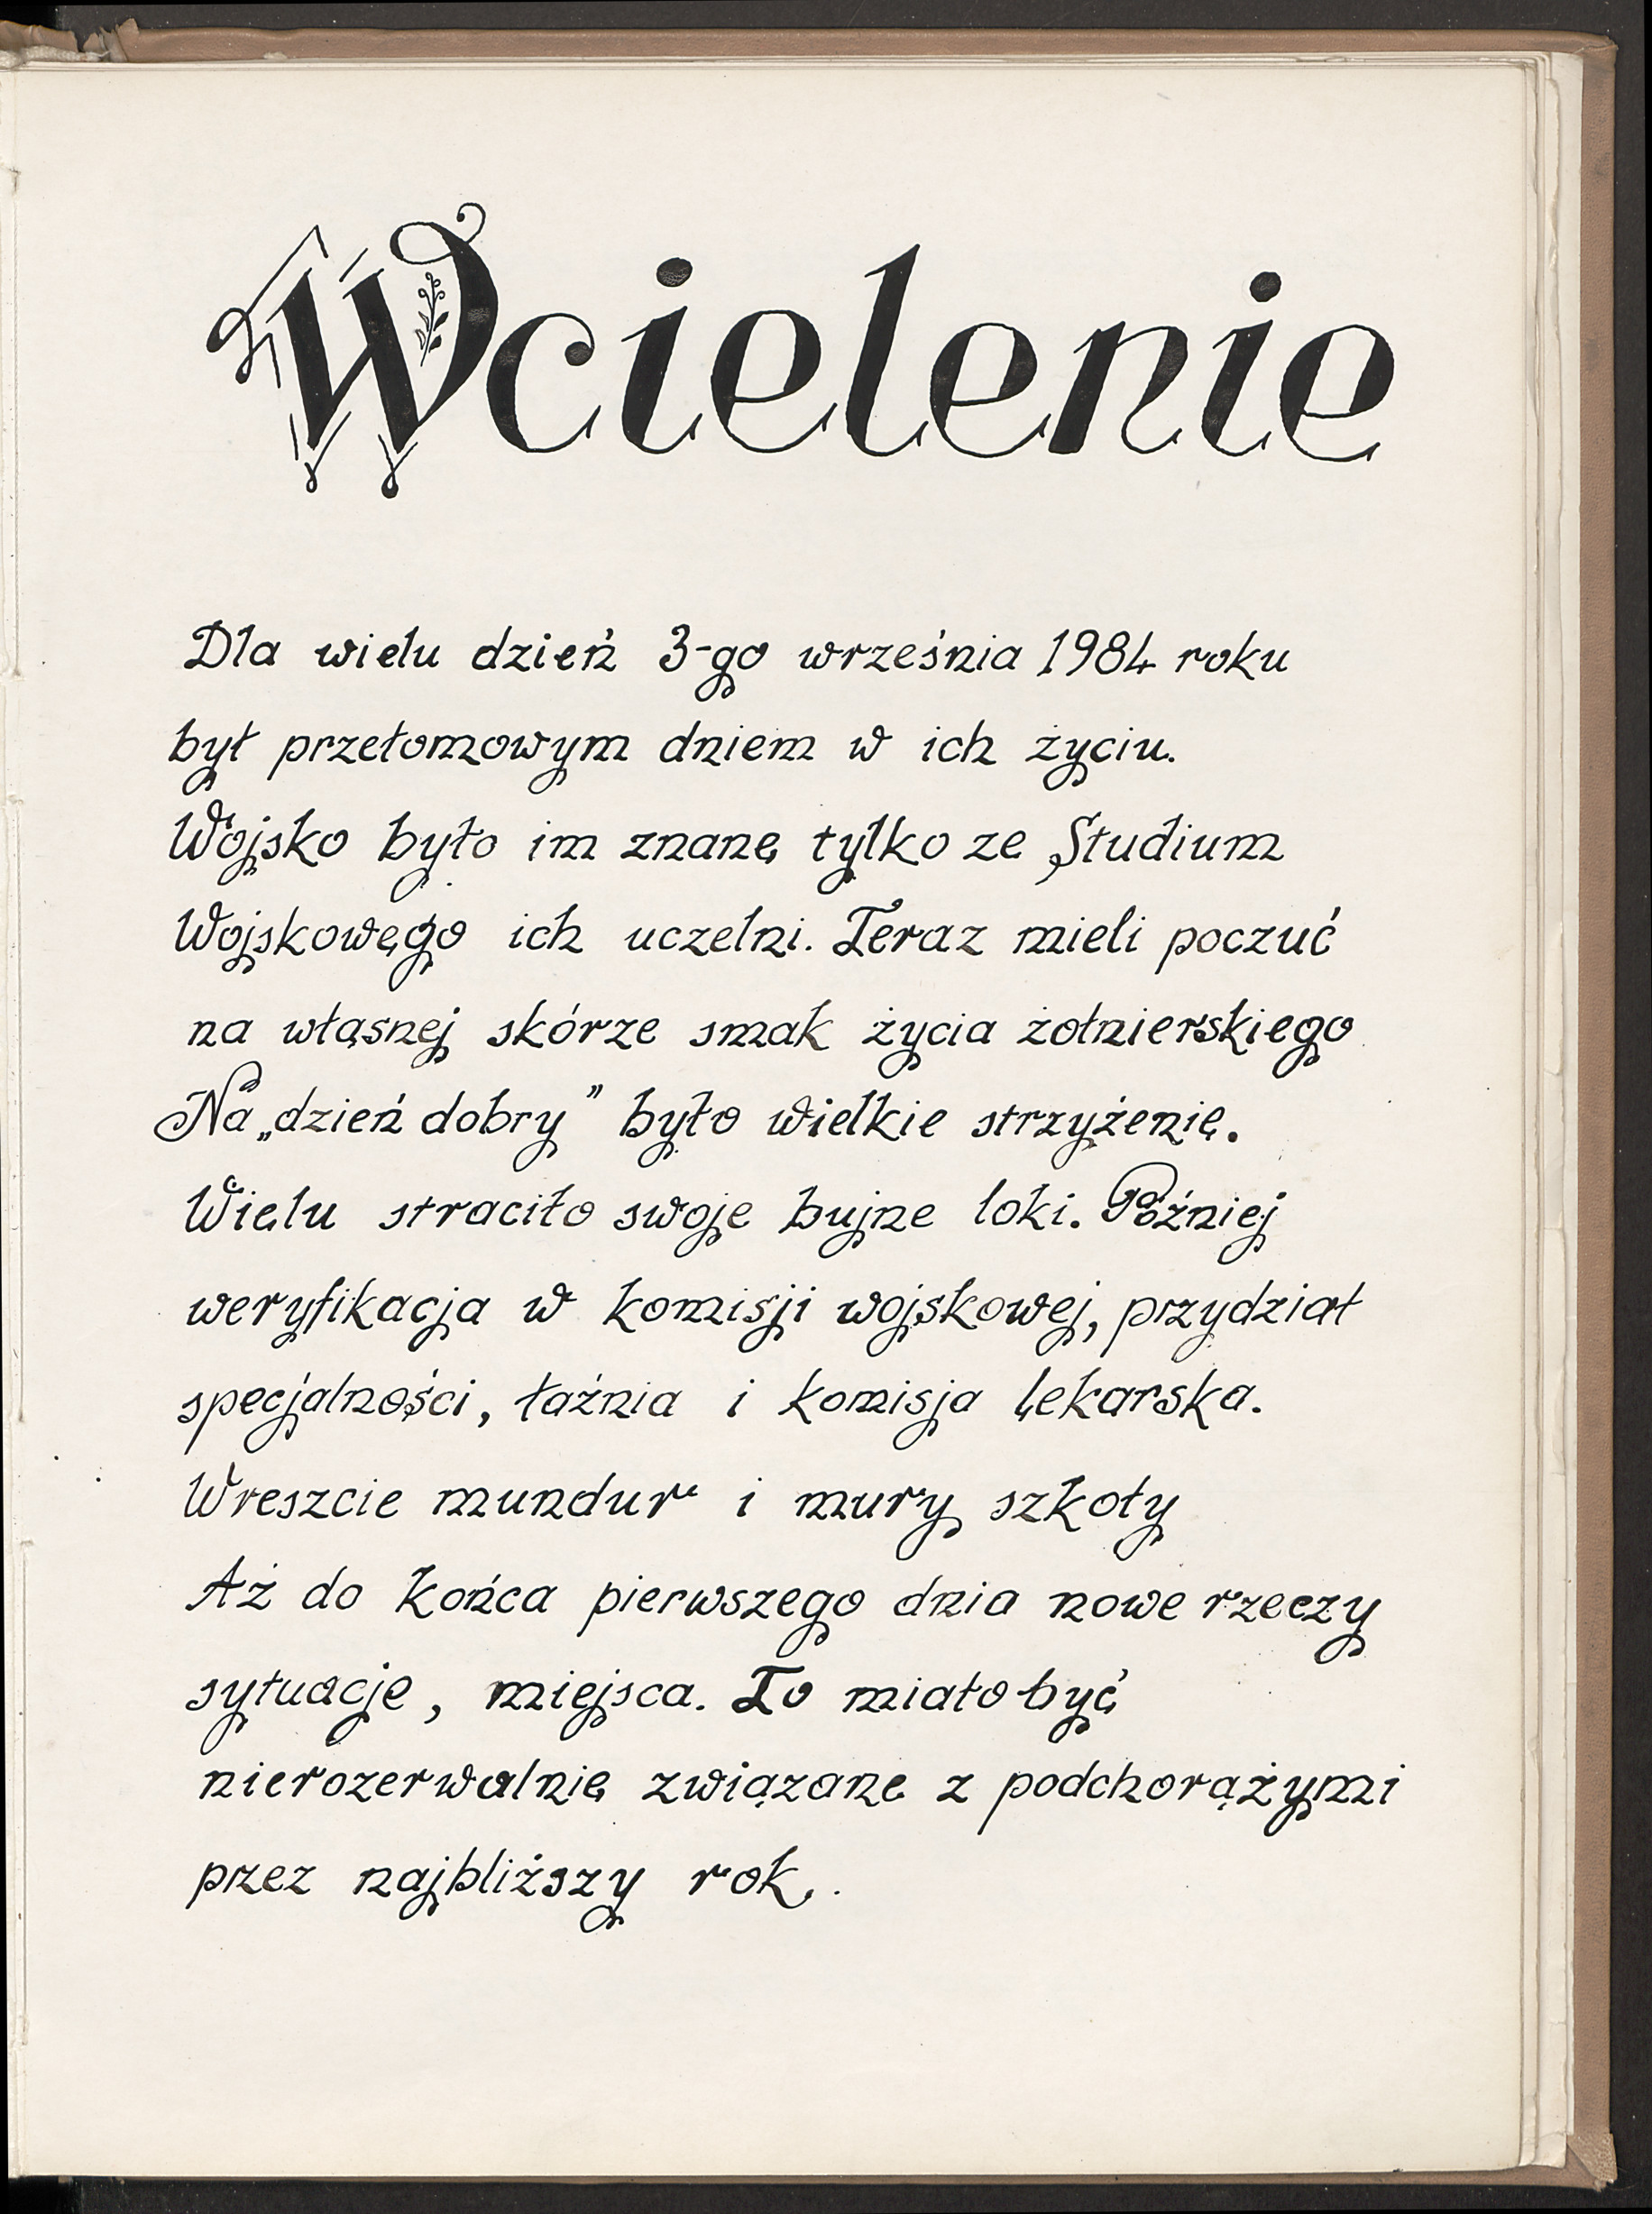 Wcielenie
Dla wielu dzień 3-go września 1984 roku
był przełomowym dniem w ich życiu.
Wojsko było im znane tylko ze Studium
Wojskowego ich uczelni. Teraz mieli poczuć
na własnej skórze smak życia żołnierskiego
Na „dzień dobry” było wielkie strzyżenie.
Wielu straciło swoje bujne loki. Później
weryfikacja w komisji wojskowej, przydział
specjalności, łaźnia i komisja lekarska.
Wreszcie mundur i mury szkoły
Aż do końca pierwszego dnia nowe rzeczy
sytuacje, miejsca. To miało być
nierozerwalnie związane z podchorążymi
przez najbliższy rok.